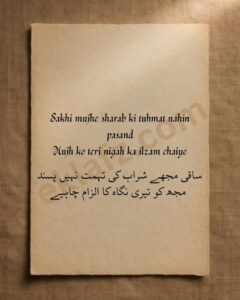 Sakhi mujhe sharab ki tuhmat nahin
pasand
Mujh ko teri nigah ka ilzam chaiye
ساقی مجھے شراب کی تہمت نہیں پسند
مجھ کو تیری نگاہ کا الزام چاہیے